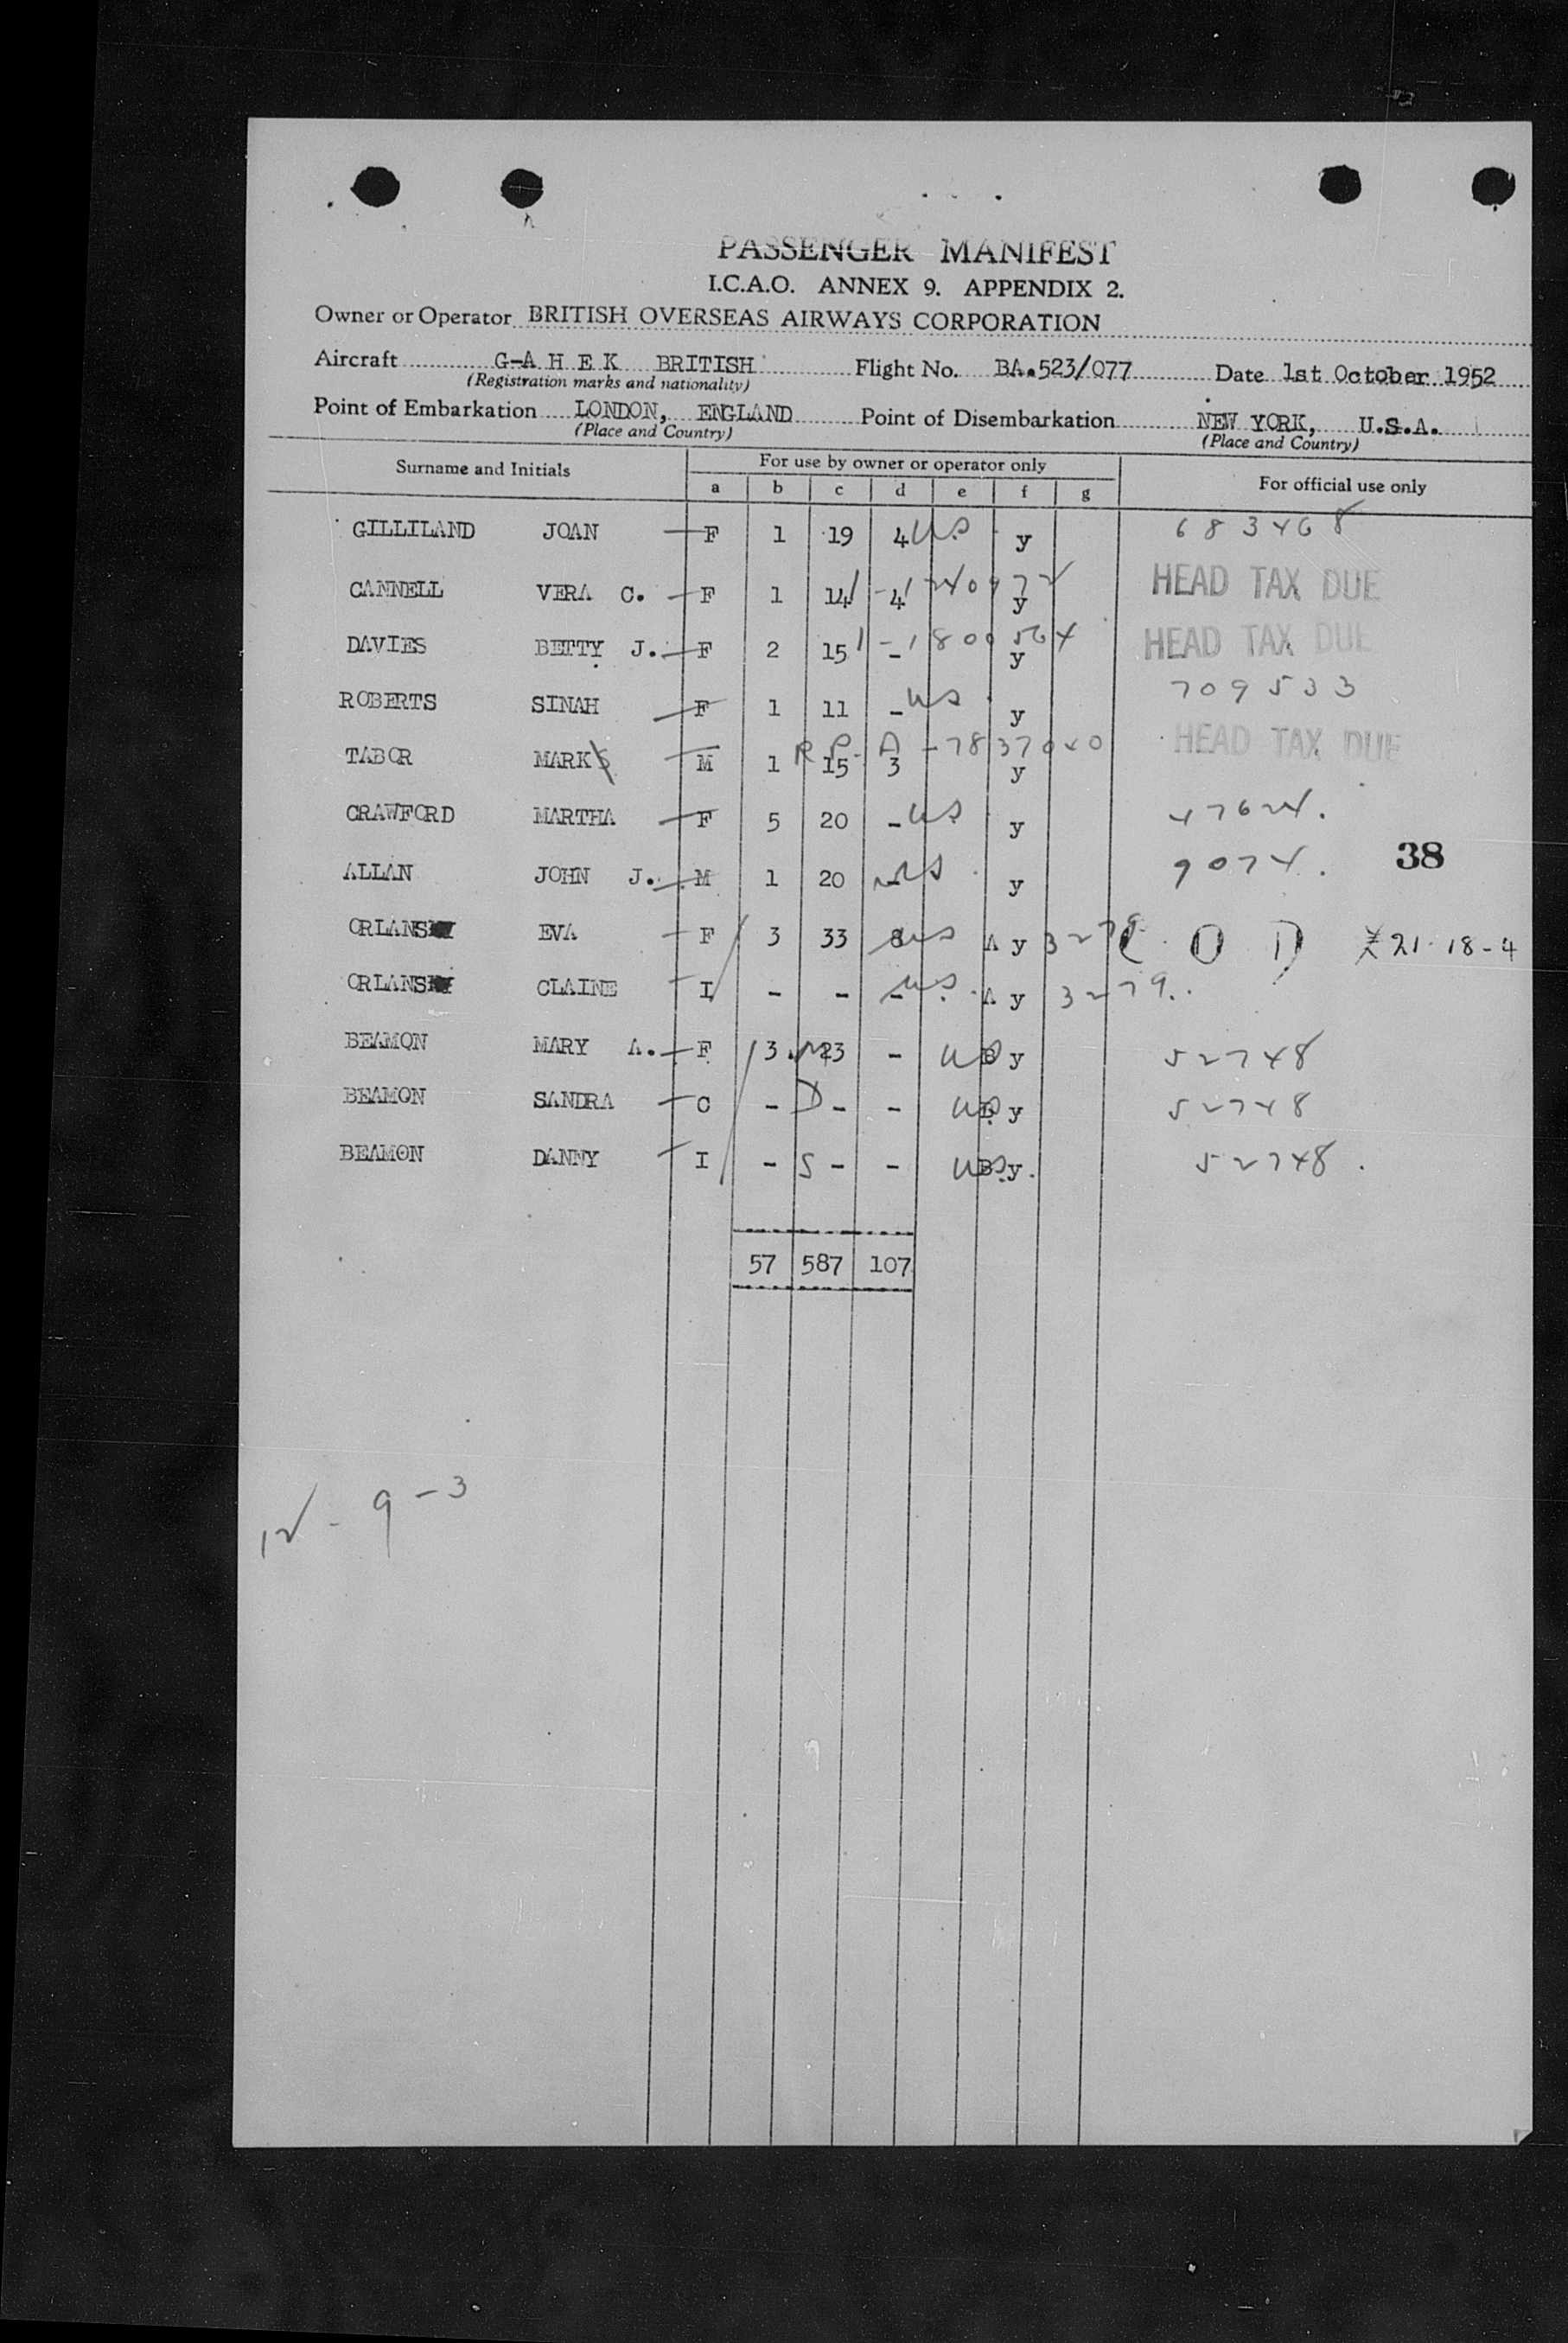 PASSENGER MANIFEST
I.C.A.O. ANNEX 9. APPENDIX 2.
Owner or Operator BRITISH OVERSEAS AIRWAYS CORPORATION
Aircraft G-A H E K BRITISH Flight No. BA.523/077 Date 1st October 1952
(Registration marks and nationality)
Point of Embarkation LONDON, ENGLAND Point of Disembarkation NEW YORK, U.S.A.
(Place and Country) (Place and Country)
Surname and Initials For use by owner or operator only For official use only
a b c d e f g
GILLILAND JOAN F 1 19 4 US y 683468
CANNELL VERA C. F 1 14 4 y HEAD TAX DUE
DAVIES BETTY J. F 2 15 - y HEAD TAX DUE
ROBERTS SINAH F 1 11 - US y 709533
TABOR MARK M 1 15 3 y HEAD TAX DUE
CRAWFORD MARTHA F 5 20 - US y 47624.
ALLAN JOHN J. M 1 20 US y 9074. 38
EVA F 3 33 US A y 3279 C O D 21-18-4
CLAINE I - - - US A y 3279..
BEAMON MARY A. F 3 23 - US B y 52748
BEAMON SANDRA C - D - - US B y 52748
BEAMON DANNY I - S - - US B y. 52748.
57 587 107
12 - 9 - 3